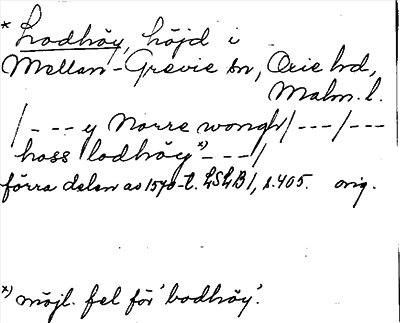 * Lodhöy, höjd i
Mellan-Grevie sn, Oxie hd,
Malm. l.
/ - - - y Norre wongh/ - - - / - - -
hoss lodhöy *) - - - /
förra delen av 1570-t. LSLB 1, s. 405. orig.
*) möjl. fel för 'bodhöy'.